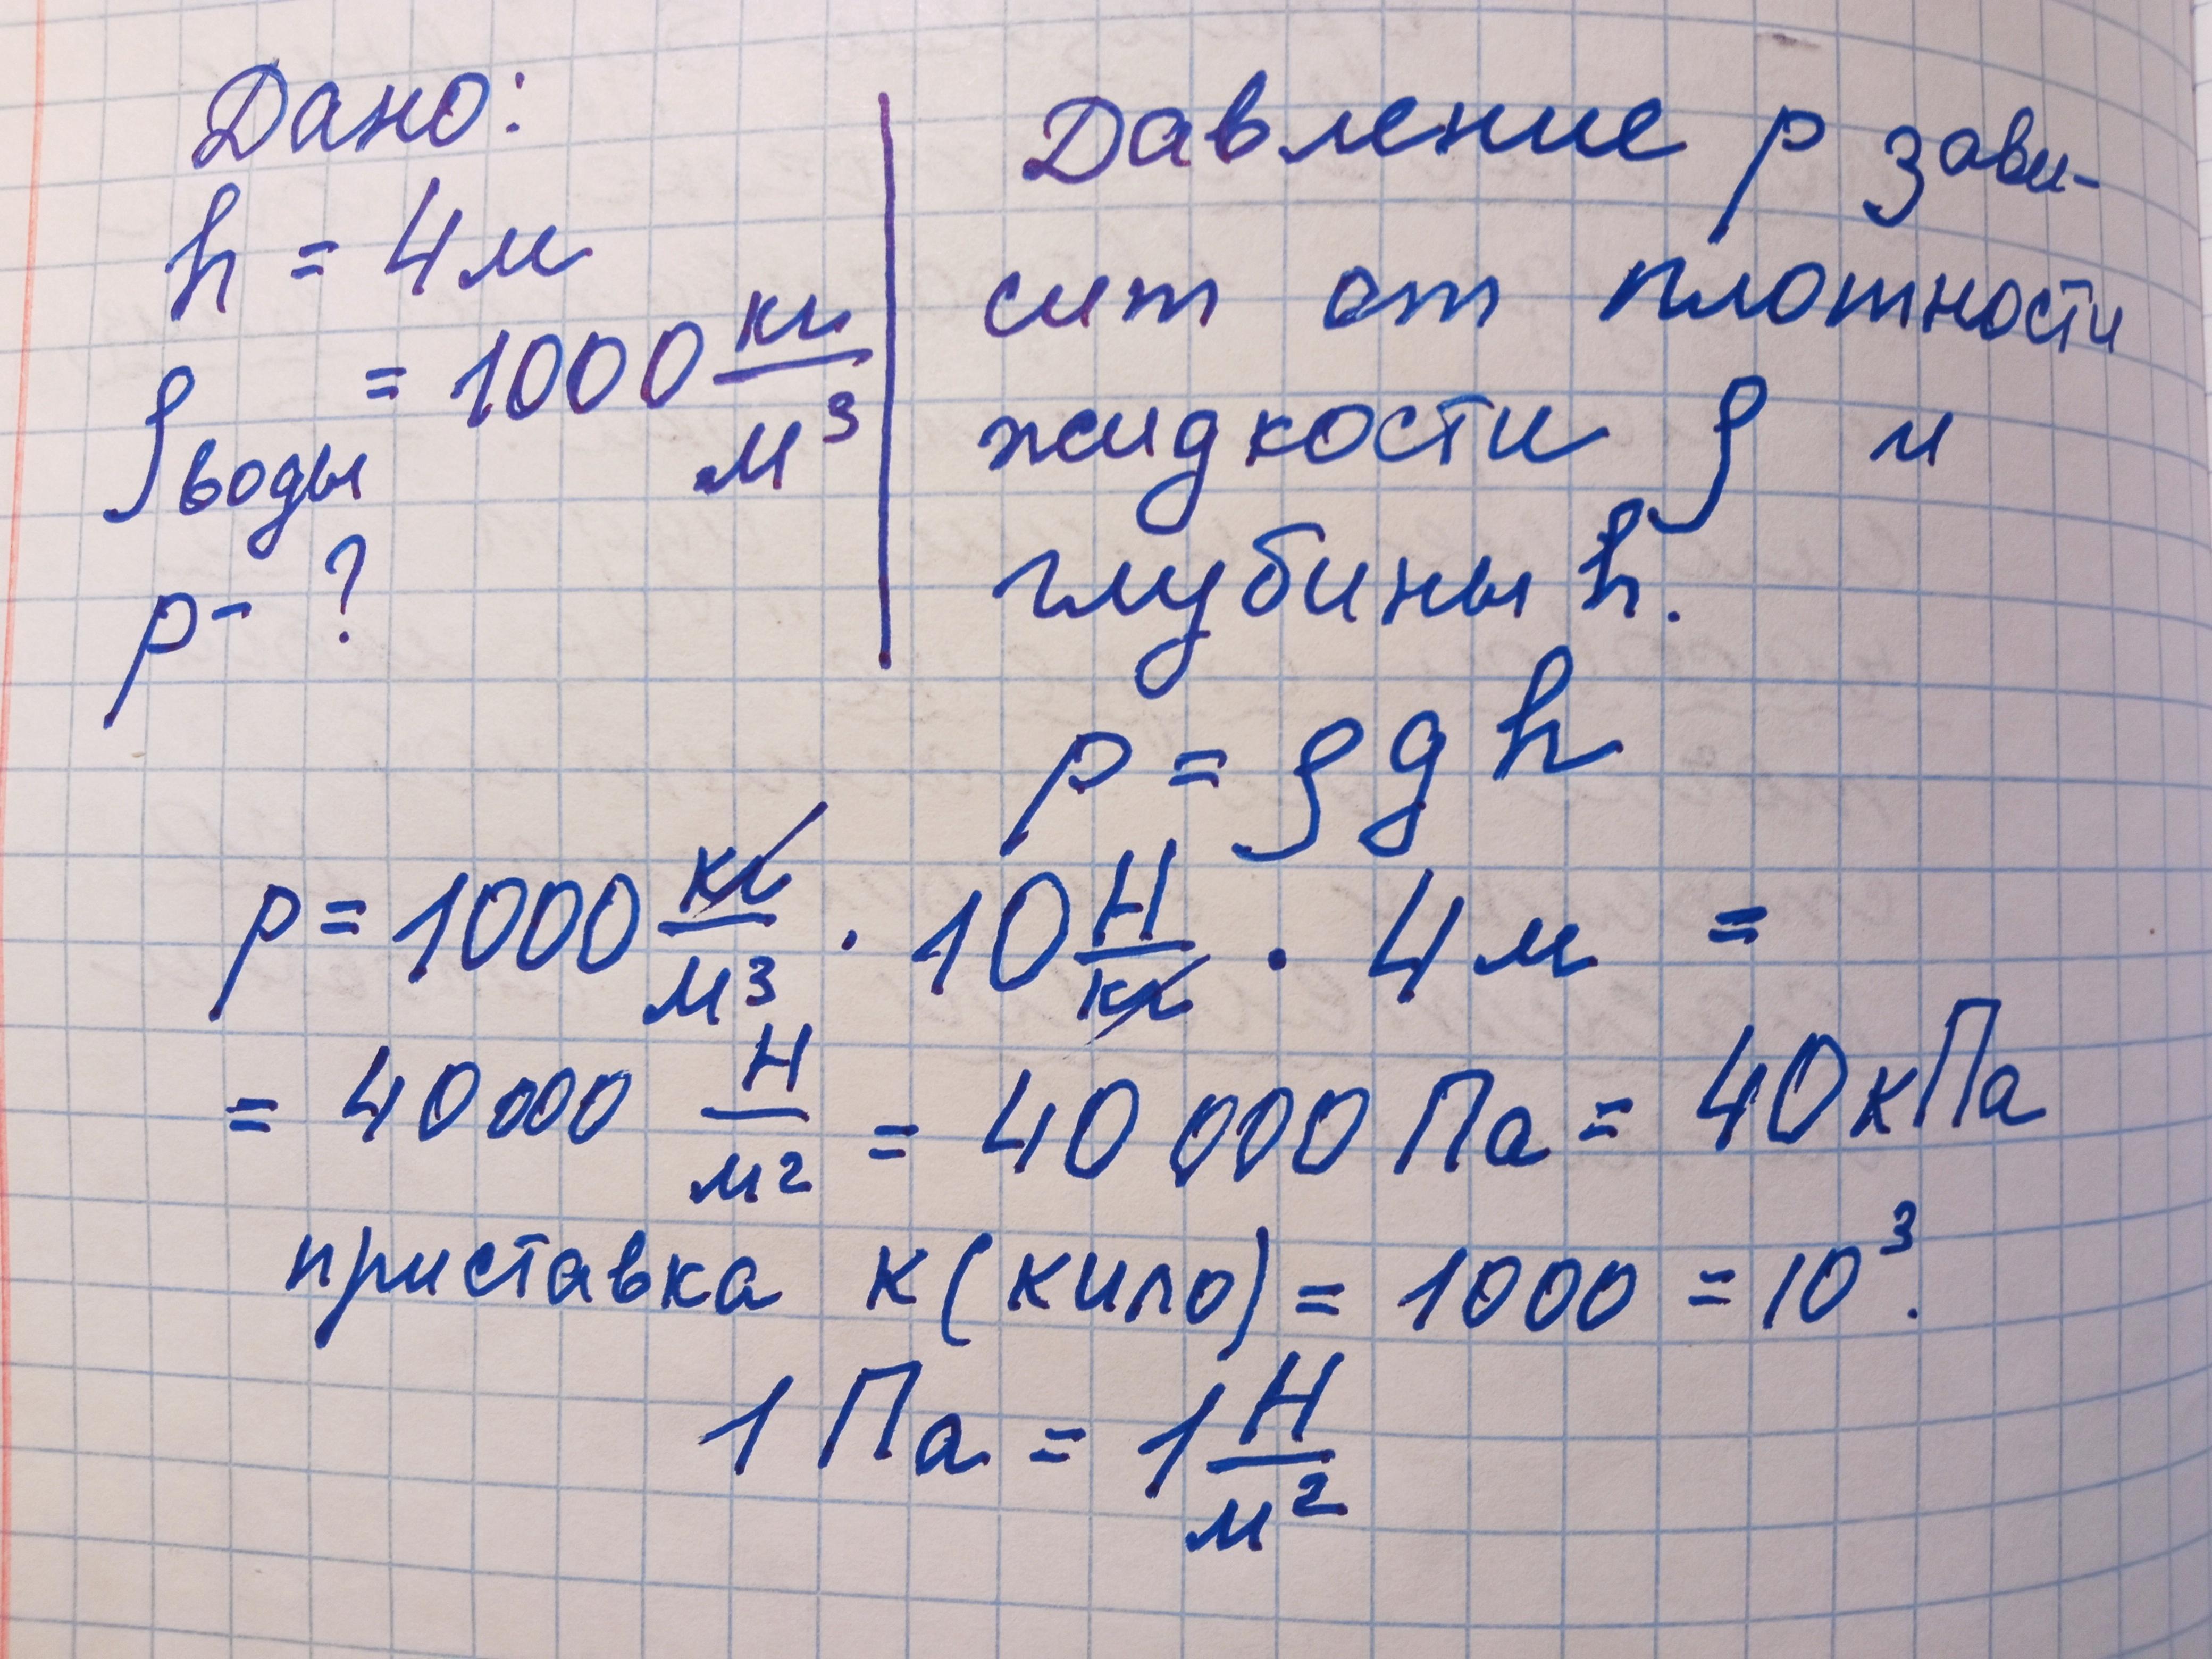 Дано:
h = 4 м
ρводы = 1000 кг/м³
p - ?
Давление p зави-
сит от плотности
жидкости ρ и
глубины h.
p = ρ g h
p = 1000 кг/м³ · 10 Н/кг · 4 м =
= 40 000 Н/м² = 40 000 Па = 40 кПа
приставка к (кило) = 1000 = 10³.
1 Па = 1 Н/м²